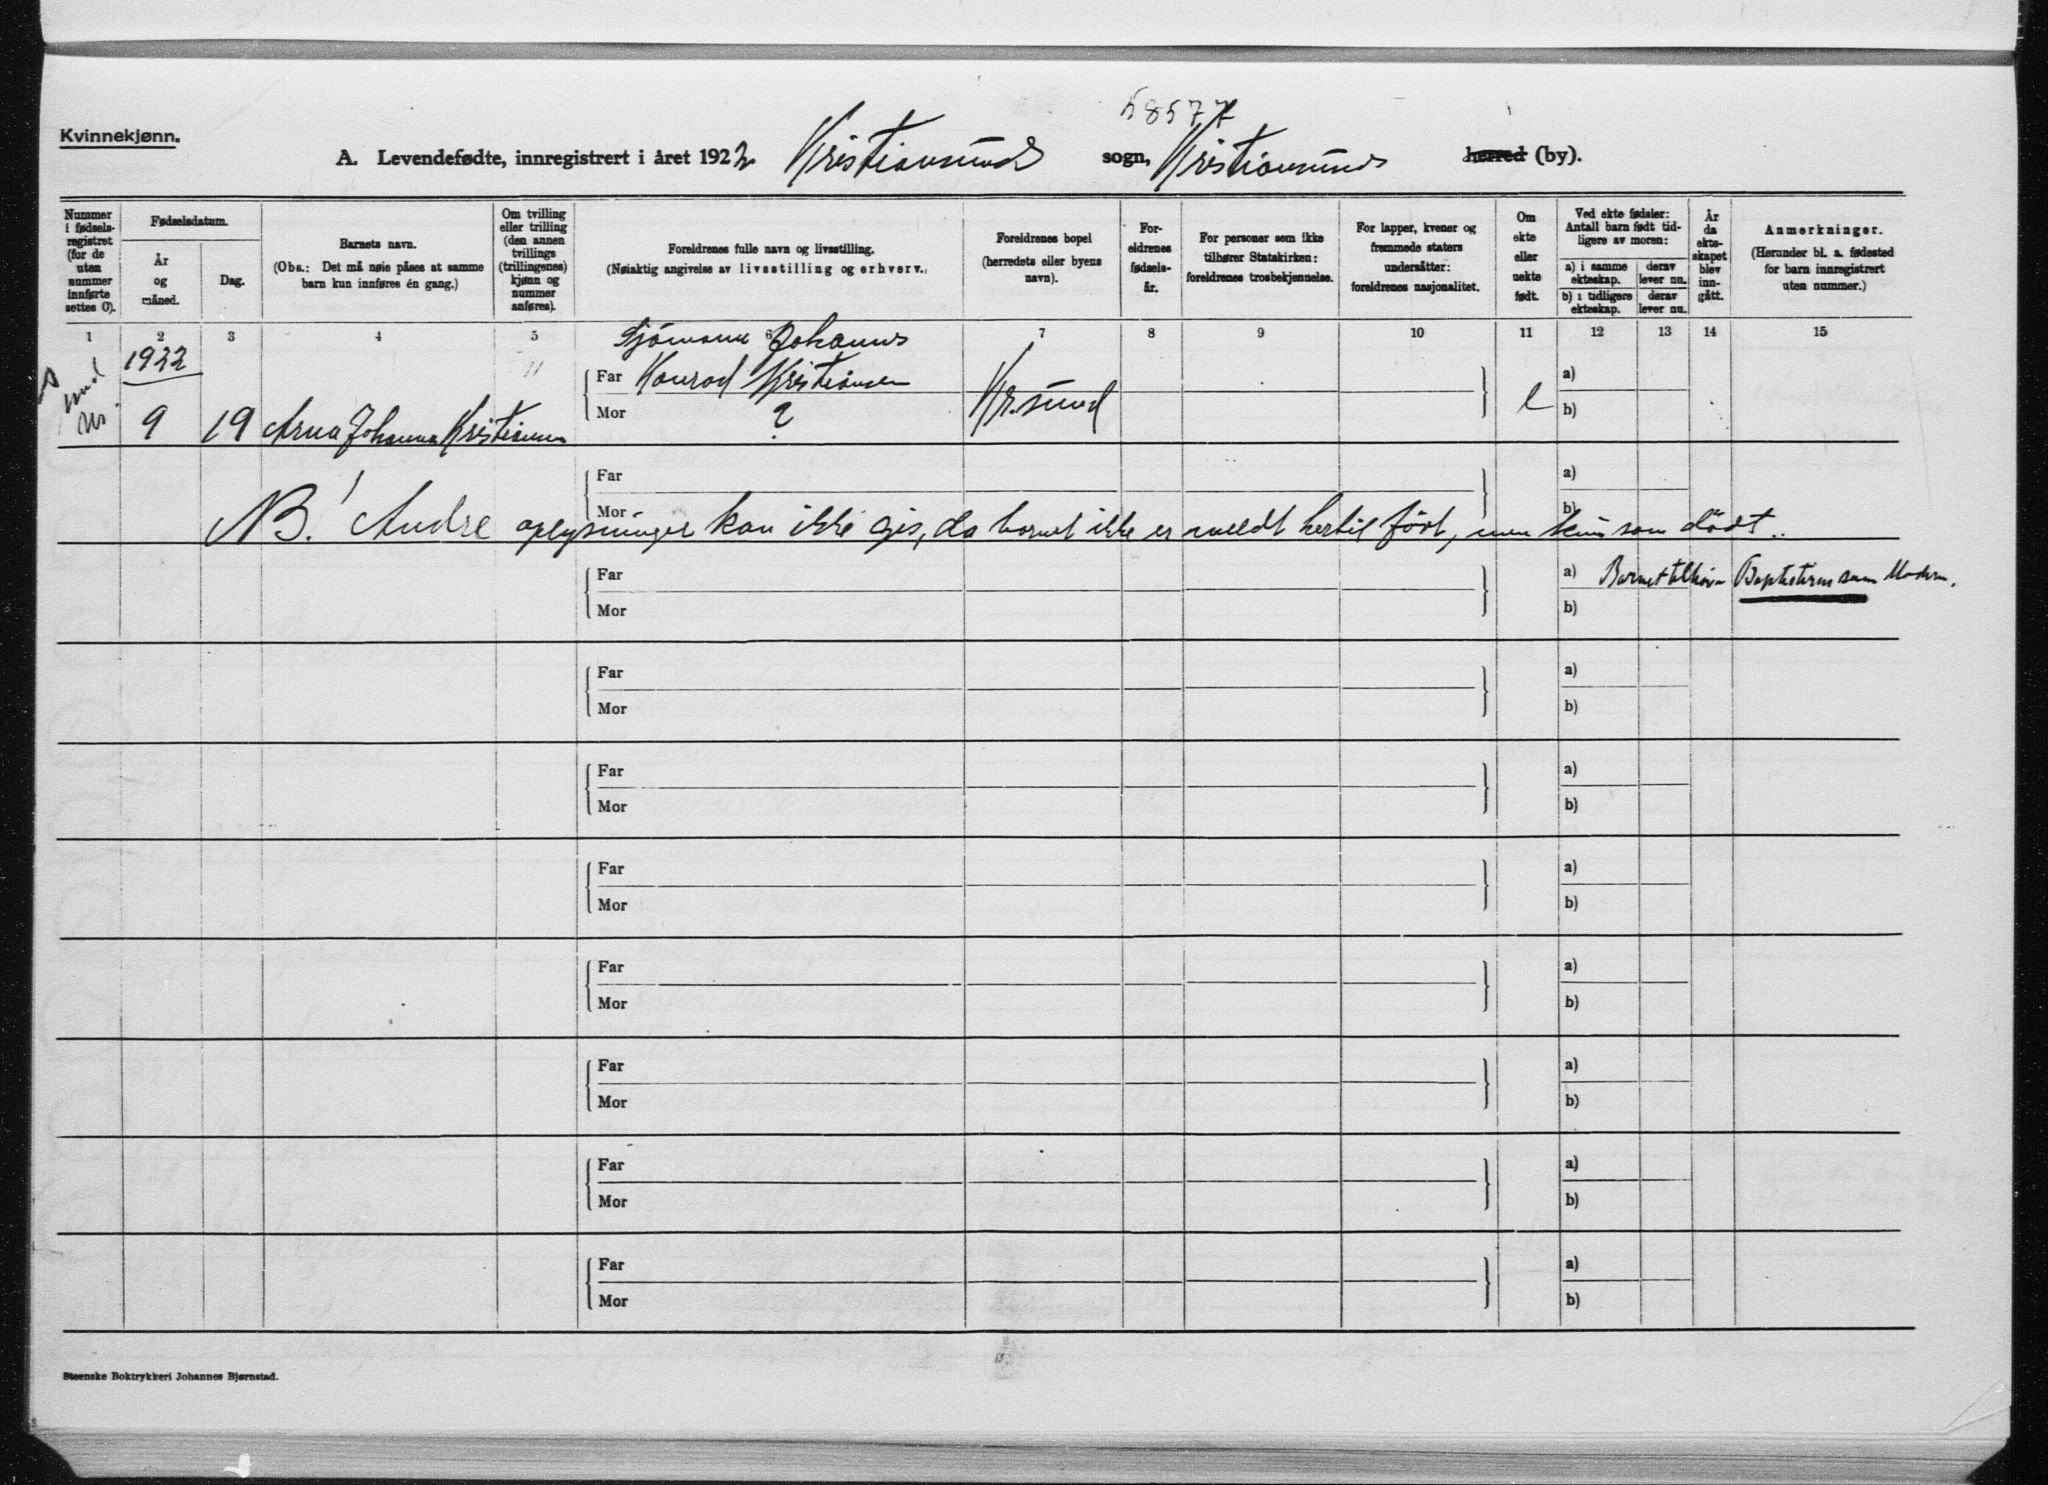 58577
Kvinnekjønn.
A. Levendefødte, innregistrert i året 1922. Kristiansunds sogn, Kristiansunds herred (by).
Nummer i fødsels-registret (for de uten nummer innførte settes 0).
Fødselsdatum.
År og måned.
Dag.
Barnets navn.
(Obs.: Det må nøie påses at samme barn kun innføres én gang.)
Om tvilling eller trilling (den annen tvillings (trillingenes) kjønn og nummer anføres).
Foreldrenes fulle navn og livsstilling.
(Nøiaktig angivelse av livsstilling og erhverv.)
Foreldrenes bopel (herredets eller byens navn).
For-eldrenes fødsels-år.
For personer som ikke tilhører Statskirken: foreldrenes trosbekjennelse.
For lapper, kvener og fremmede staters undersåtter: foreldrenes nasjonalitet.
Om ekte eller uekte født.
Ved ekte fødsler: Antall barn født tid-ligere av moren:
a) i samme ekteskap.
derav lever nu.
b) i tidligere ekteskap.
derav lever nu.
År da ekte-skapet blev inn-gått.
Anmerkninger.
(Herunder bl. a. fødested for barn innregistrert uten nummer.)
1 2 3 4 5 6 7 8 9 10 11 12 13 14 15
1922
Sjømann Johannes
Far Konrad Kristiansen
a)
9 19 Arna Johanna Kristiansen
Mor ?
Kr.sund
e
b)
Far a)
Mor b)
NB! Andre oplysninger kan ikke gis, da barnet ikke er meldt hertil født, men kun som dødt.
Far a) Barnet tilhører Baptisterne som Moderen.
Mor b)
Far a)
Mor b)
Far a)
Mor b)
Far a)
Mor b)
Far a)
Mor b)
Far a)
Mor b)
Far a)
Mor b)
Far a)
Mor b)
Steenske Boktrykkeri Johannes Bjørnstad.